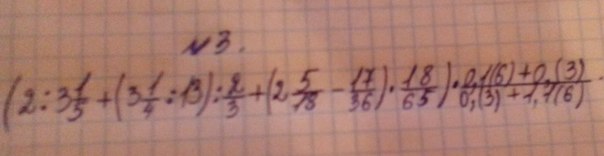 №3.
(2:3 1/5 + (3 1/4 : 13) : 2/3 + (2 5/18 - 17/36) · 18/65) · 0,1(6) + 0,(3) / 0,(3) + 1,1(6) .